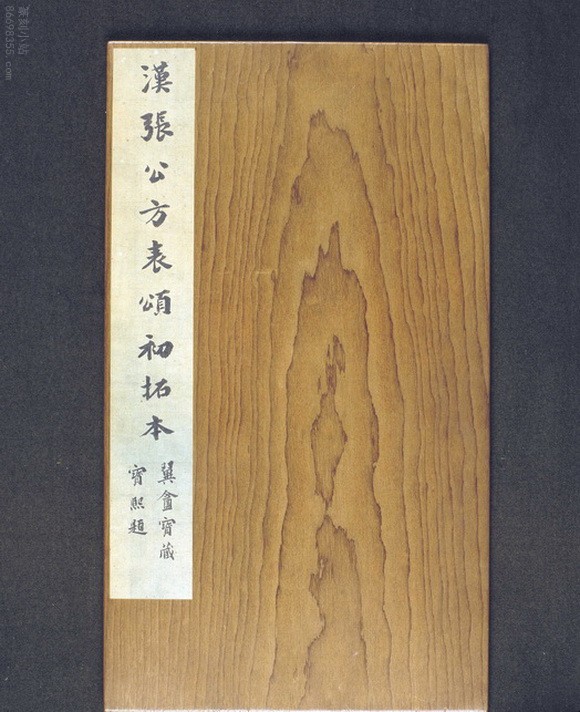 漢張公方表頌初拓本
翼盦寶藏
寶熙題
篆刻小站
86698355.com